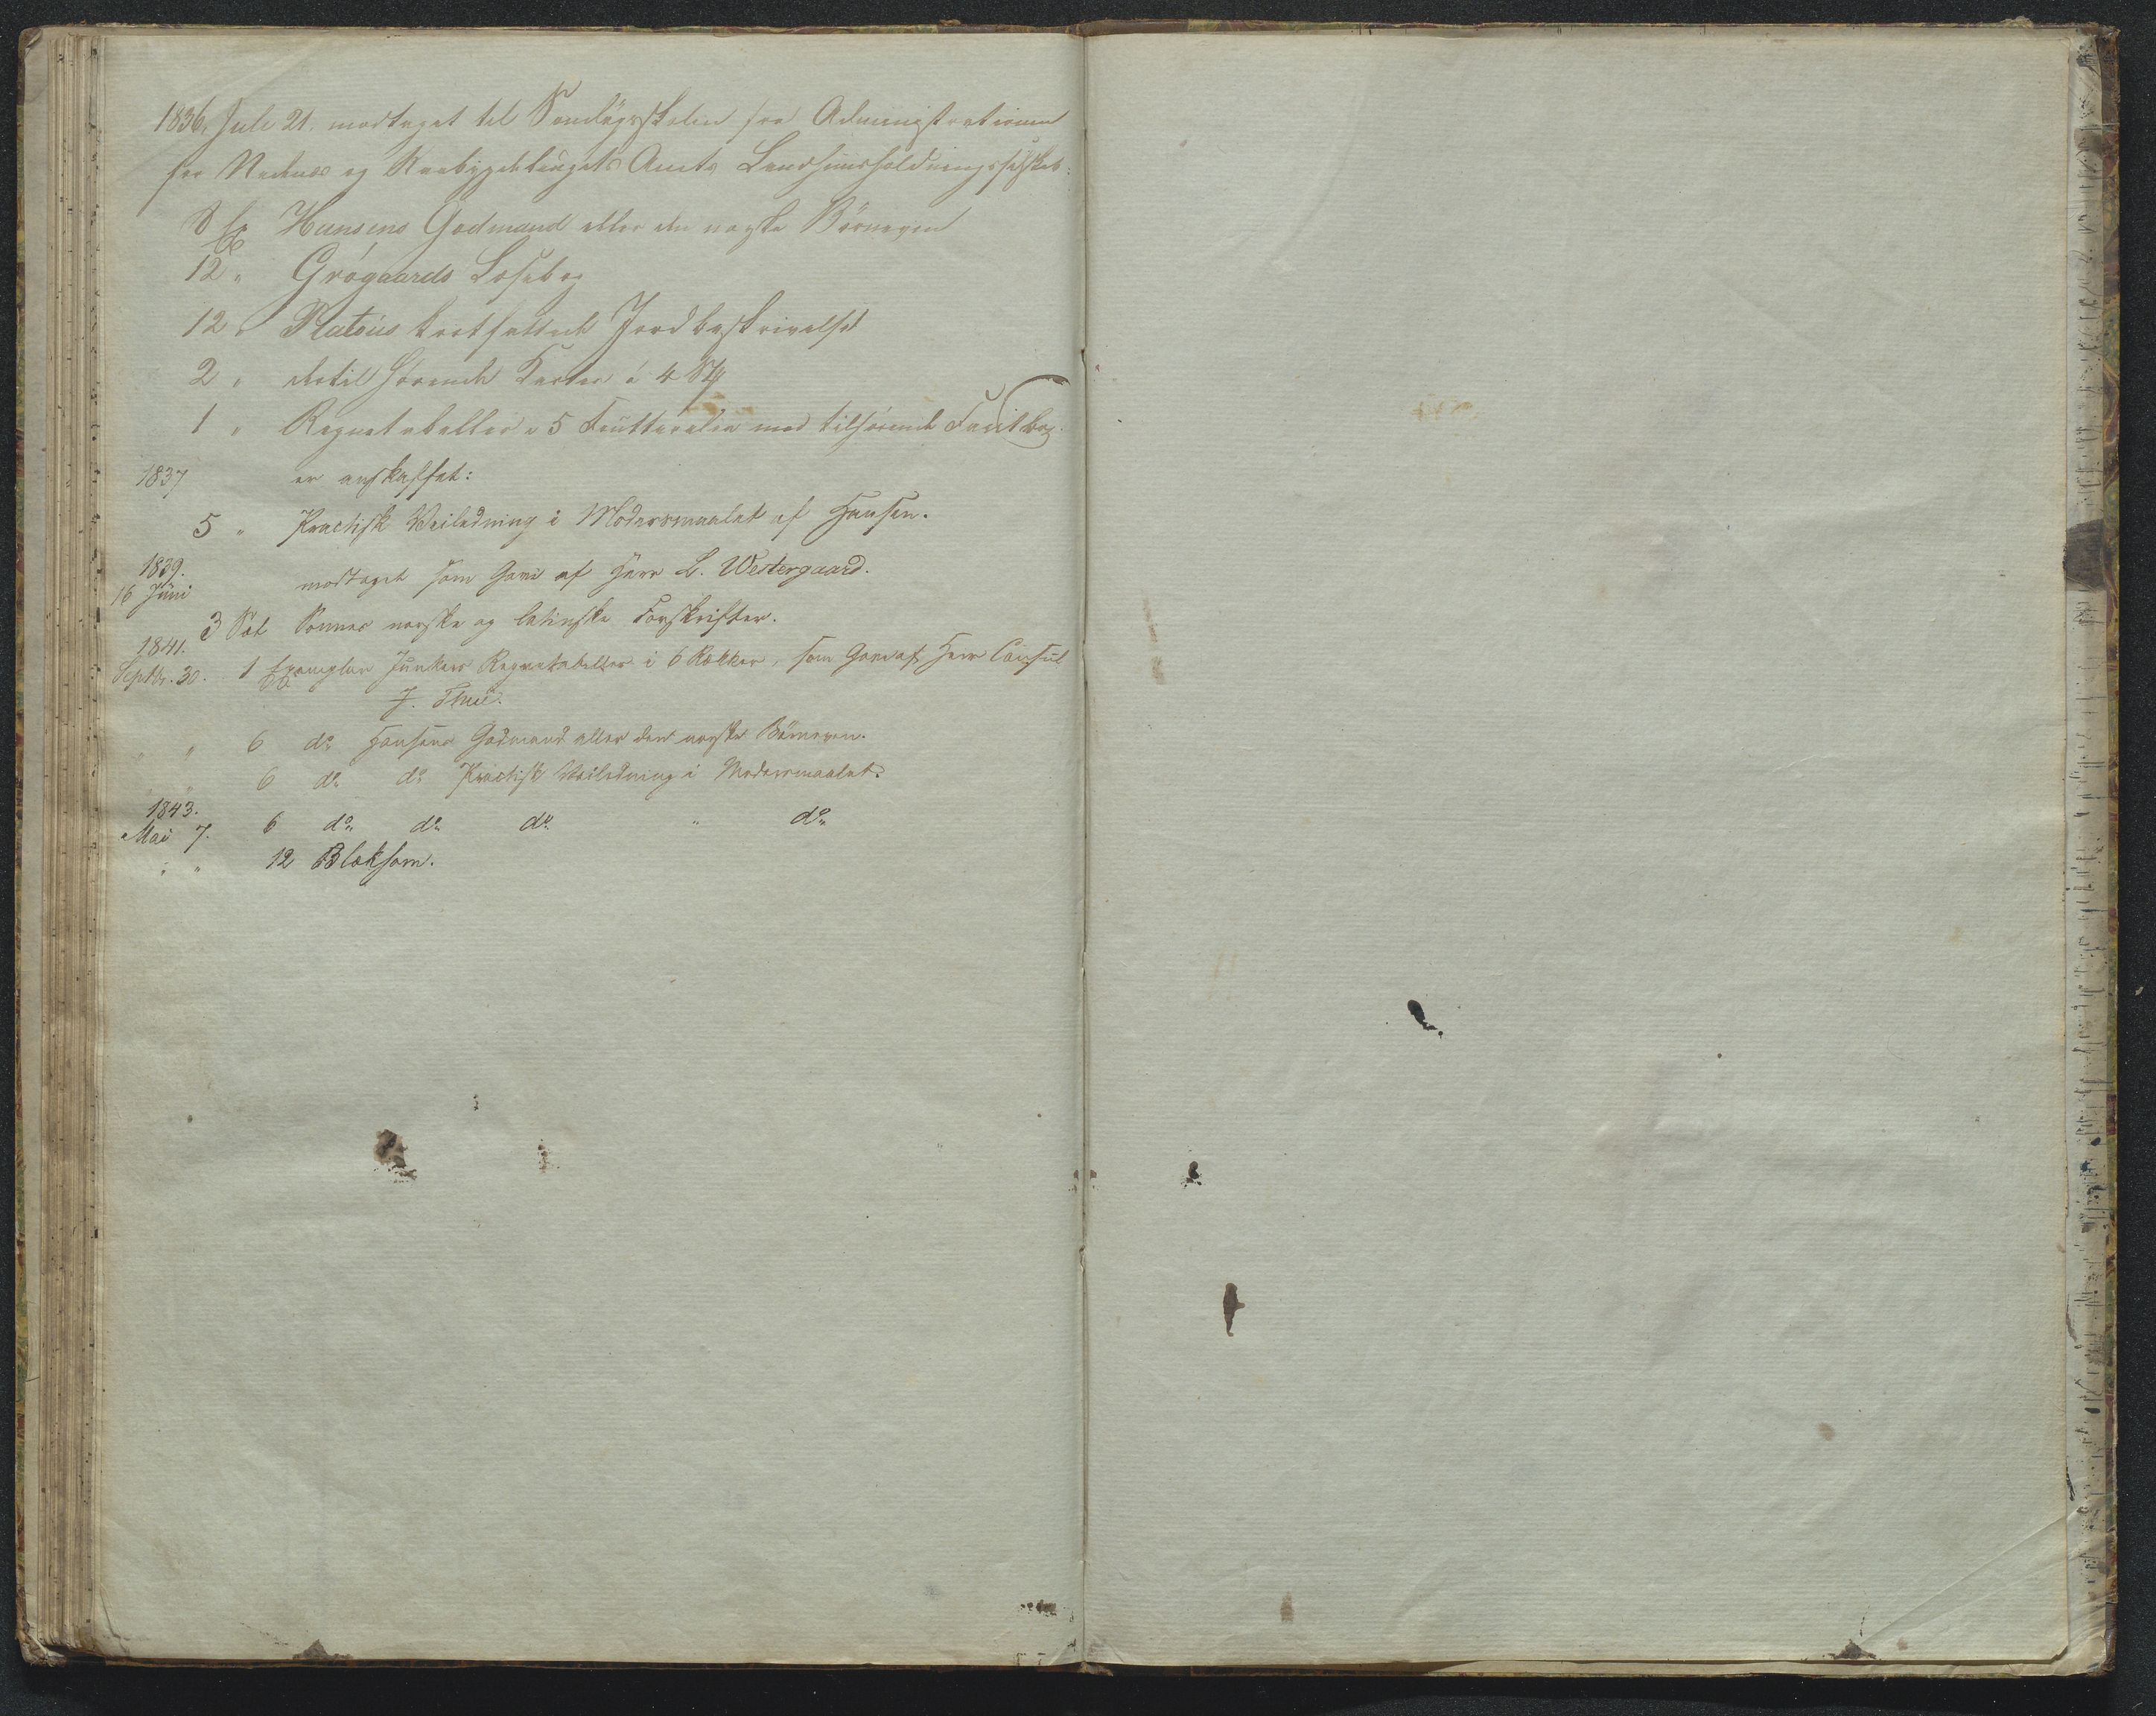 1836, Juli 21. modtaget til Søndagsskolen fra Administrationen
for Nedenes og Raabygdelaugets Amts Landhuusholdningsselskab:
8 Ex Hansens Godmand eller den norske Børneven
12 " Grøgaards Læsebog
12 " Platous kortfattede Jordbeskrivelse
2 " dertil hørende Karter à 4 Stk
1 " Regnetabeller i 5 med tilhørende Facitbog.
1837 er anskaffet:
5 " Practisk Veiledning i Modersmaalet af Hansen.
1839.
16 Juni modtaget som Gave af Herr L. Westergaard.
3 Sæt Sonnes norske og latinske Forskrifter.
1841.
Septbr. 30. 1 Exemplar Junkers Regnetabeller i 6 Rækker, som Gave af Herr Consul
J. Thue.
" 6 do Hansens Godmand eller den norske Børneven.
" 6 do do Practisk Veiledning i Modersmaalet.
1843.
Mai 7. 6 do do do " do
" " 12 Blækhorn.